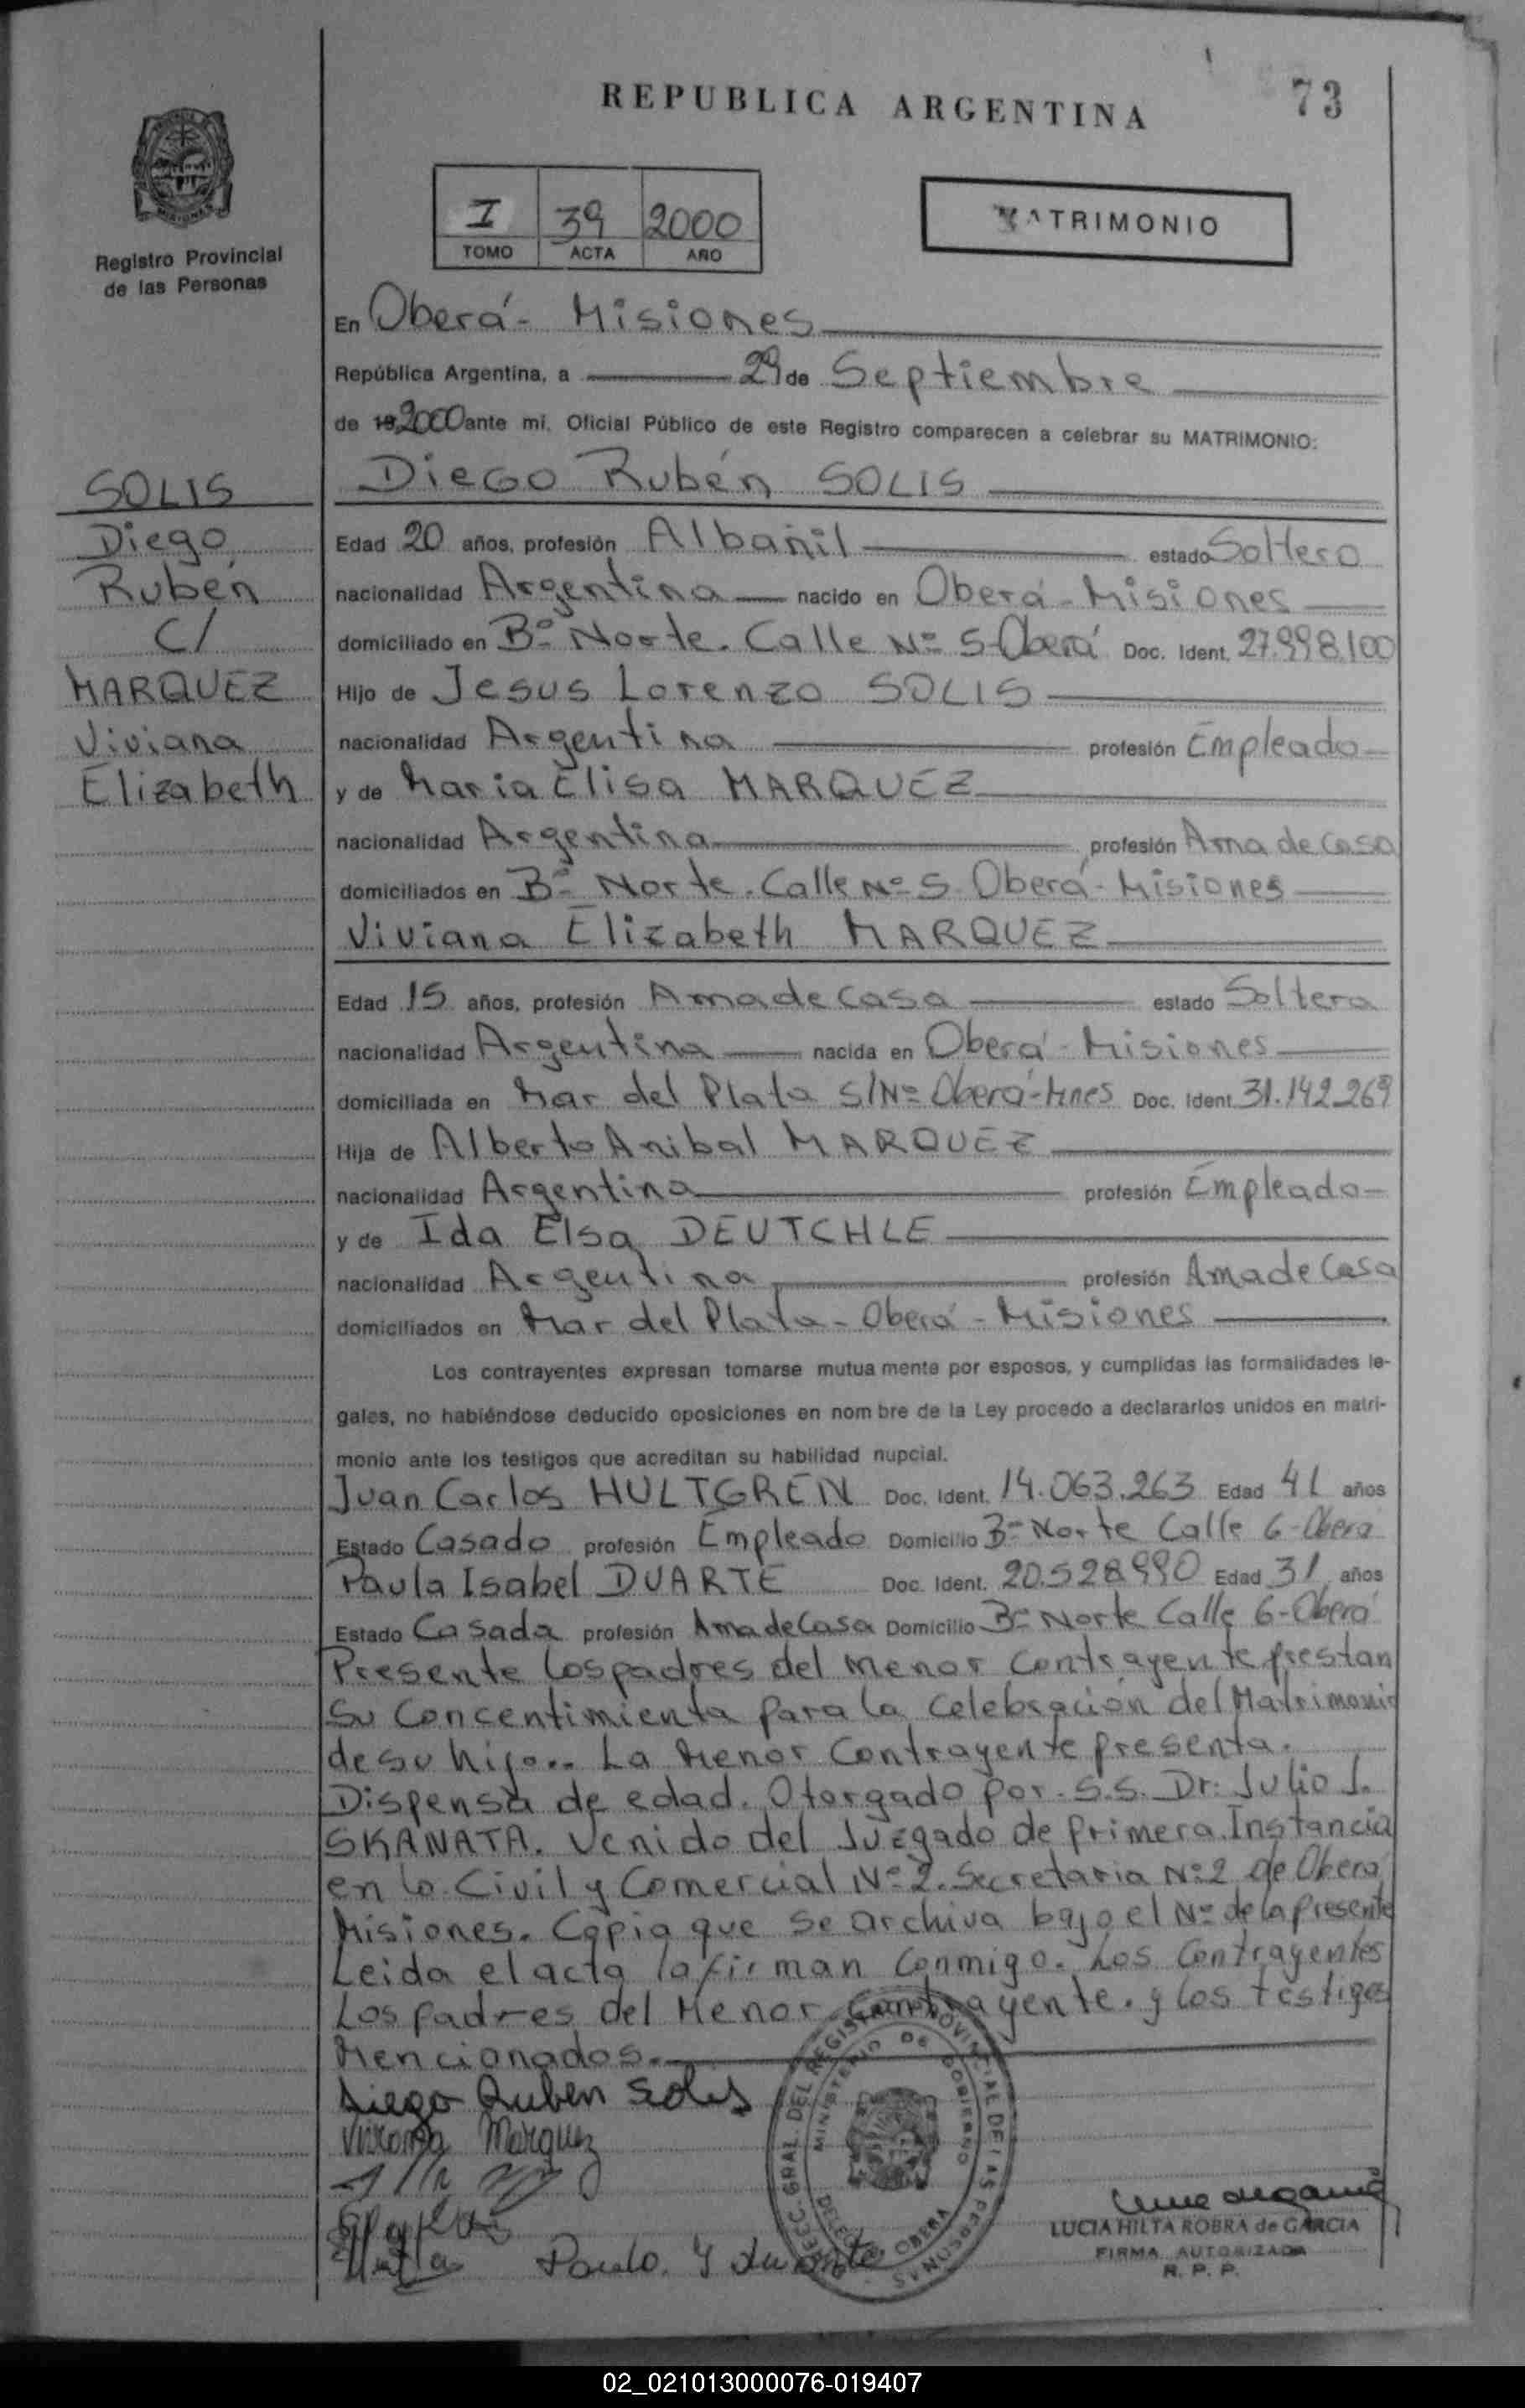 REPUBLICA ARGENTINA
73
Registro Provincial
de las Personas
I 39 2000
TOMO ACTA AÑO
MATRIMONIO
En Oberá - Misiones
República Argentina, a 29 de Septiembre
de 19 2000 ante mí, Oficial Público de este Registro comparecen a celebrar su MATRIMONIO:
SOLIS
Diego
Rubén
C/
MARQUEZ
Viviana
Elizabeth
Diego Rubén SOLIS
Edad 20 años, profesión Albañil estado Soltero
nacionalidad Argentina nacido en Oberá - Misiones
domiciliado en Bº Norte. Calle Nº 5 - Oberá Doc. Ident. 27.998.100
Hijo de Jesus Lorenzo SOLIS
nacionalidad Argentina profesión Empleado
y de Maria Elisa MARQUEZ
nacionalidad Argentina profesión Ama de Casa
domiciliados en Bº Norte. Calle Nº 5. Oberá - Misiones
Viviana Elizabeth MARQUEZ
Edad 15 años, profesión Ama de Casa estado Soltera
nacionalidad Argentina nacida en Oberá - Misiones
domiciliada en Mar del Plata S/Nº Oberá - Mnes Doc. Ident 31.142.269
Hija de Alberto Anibal MARQUEZ
nacionalidad Argentina profesión Empleado
y de Ida Elsa DEUTCHLE
nacionalidad Argentina profesión Ama de Casa
domiciliados en Mar del Plata - Oberá - Misiones
Los contrayentes expresan tomarse mutua mente por esposos, y cumplidas las formalidades le-
gales, no habiéndose deducido oposiciones en nom bre de la Ley procedo a declararlos unidos en matri-
monio ante los testigos que acreditan su habilidad nupcial.
Juan Carlos HULTGREN Doc. Ident. 14.063.263 Edad 41 años
Estado Casado profesión Empleado Domicilio Bº Norte Calle 6 - Oberá
Paula Isabel DUARTE Doc. Ident. 20.528.990 Edad 31 años
Estado Casada profesión Ama de Casa Domicilio Bº Norte Calle 6 - Oberá
Presente los padres del menor Contrayente prestan
su Concentimienta para la celebración del Matrimonio
de su hijo.. La Menor Contrayente presenta.
Dispensa de edad. Otorgado por. S.S. Dr: Julio J.
SKANATA. Venido del Juzgado de Primera Instancia
en lo Civil y Comercial Nº 2. Secretaria Nº 2 de Oberá
Misiones. Copia que se archiva bajo el Nº de la presente
Leida el acta la firman Conmigo. Los Contrayentes
Los padres del Menor Contrayente. y los testigos
Mencionados.
Diego Ruben Solis
Viviana Marquez
Paula I Duarte
DIRECC. GRAL. DEL REGISTRO PROVINCIAL DE LAS PERSONAS
MINISTERIO DE GOBIERNO
OBERA
LUCIA HILTA ROBRA de GARCIA
FIRMA AUTORIZADA
R. P. P.
02_021013000076-019407